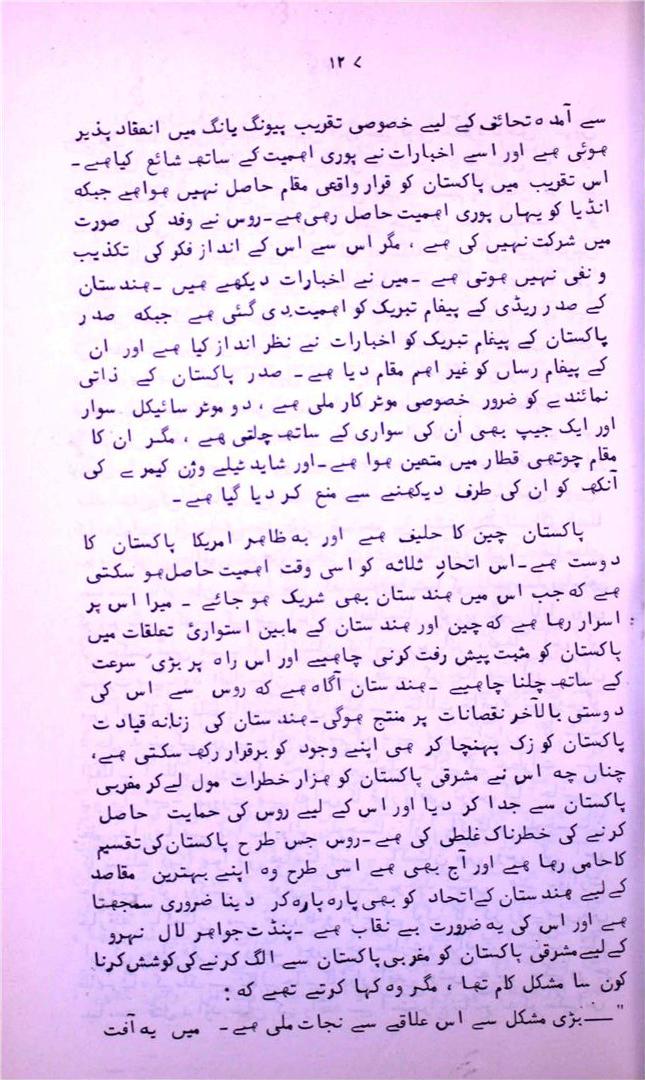 ۱۲۷
سے آمدہ تحائف کے لیے خصوصی تقریب پیونگ یانگ میں انعقاد پذیر
ہوئی ہے اور اسے اخبارات نے پوری اہمیت کے ساتھ شائع کیا ہے۔
اس تقریب میں پاکستان کو قرار واقعی مقام حاصل نہیں ہوا ہے جبکہ
انڈیا کو یہاں پوری اہمیت حاصل رہی ہے۔ روس نے وفد کی صورت
میں شرکت نہیں کی ہے، مگر اس سے اس کے انداز فکر کی تکذیب
و نفی نہیں ہوتی ہے۔ میں نے اخبارات دیکھے ہیں۔ ہندستان
کے صدر ریڈی کے پیغام تبریک کو اہمیت دی گئی ہے جبکہ صدر
پاکستان کے پیغام تبریک کو اخبارات نے نظر انداز کیا ہے اور ان
کے پیغام رساں کو غیر اہم مقام دیا ہے۔ صدر پاکستان کے ذاتی
نمائندے کو ضرور خصوصی موٹر کار ملی ہے، دو موٹر سائیکل سوار
اور ایک جیپ بھی اُن کی سواری کے ساتھ چلتی ہے، مگر ان کا
مقام چوتھی قطار میں متعین ہوا ہے۔ اور شاید ٹیلے وژن کیمرے کی
آنکھ کو ان کی طرف دیکھنے سے منع کر دیا گیا ہے۔
پاکستان چین کا حلیف ہے اور بہ ظاہر امریکا پاکستان کا
دوست ہے۔ اس اتحادِ ثلاثہ کو اسی وقت اہمیت حاصل ہو سکتی
ہے کہ جب اس میں ہندستان بھی شریک ہو جائے ۔ میرا اس پر
اسرار رہا ہے کہ چین اور ہندستان کے مابین استواریٔ تعلقات میں
پاکستان کو مثبت پیش رفت کرنی چاہیے اور اس راہ پر بڑی سرعت
کے ساتھ چلنا چاہیے ۔ ہندستان آگاہ ہے کہ روس سے اس کی
دوستی بالآخر نقصانات پر منتج ہوگی۔ ہندستان کی زنانہ قیادت
پاکستان کو زک پہنچا کر ہی اپنے وجود کو برقرار رکھ سکتی ہے،
چناں چہ اس نے مشرقی پاکستان کو ہزار خطرات مول لے کر مغربی
پاکستان سے جدا کر دیا اور اس کے لیے روس کی حمایت حاصل
کرنے کی خطرناک غلطی کی ہے۔ روس جس طرح پاکستان کی تقسیم
کا حامی رہا ہے اور آج بھی ہے اسی طرح وہ اپنے بہترین مقاصد
کے لیے ہندستان کے اتحاد کو بھی پارہ پارہ کر دینا ضروری سمجھتا
ہے اور اس کی یہ ضرورت بے نقاب ہے ۔ پنڈت جواہر لال نہرو
کے لیے مشرقی پاکستان کو مغربی پاکستان سے الگ کرنے کی کوشش کرنا
کون سا مشکل کام تھا ، مگر وہ کہا کرتے تھے کہ :
"ـــ بڑی مشکل سے اس علاقے سے نجات ملی ہے۔ میں یہ آفت